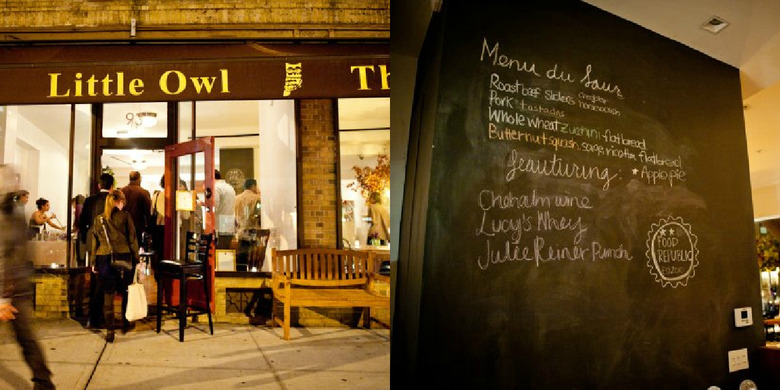 Little Owl
Th
93
Menu du Jour
Roast beef Sliders cheddar horseradish
Pork tostadas
Whole wheat zucchini flatbread
Butternut squash sage ricotta flatbread
feauturing: *Apple pie
Lucy's Whey
Julie Reiner Punch
FOOD
REPUBLIC